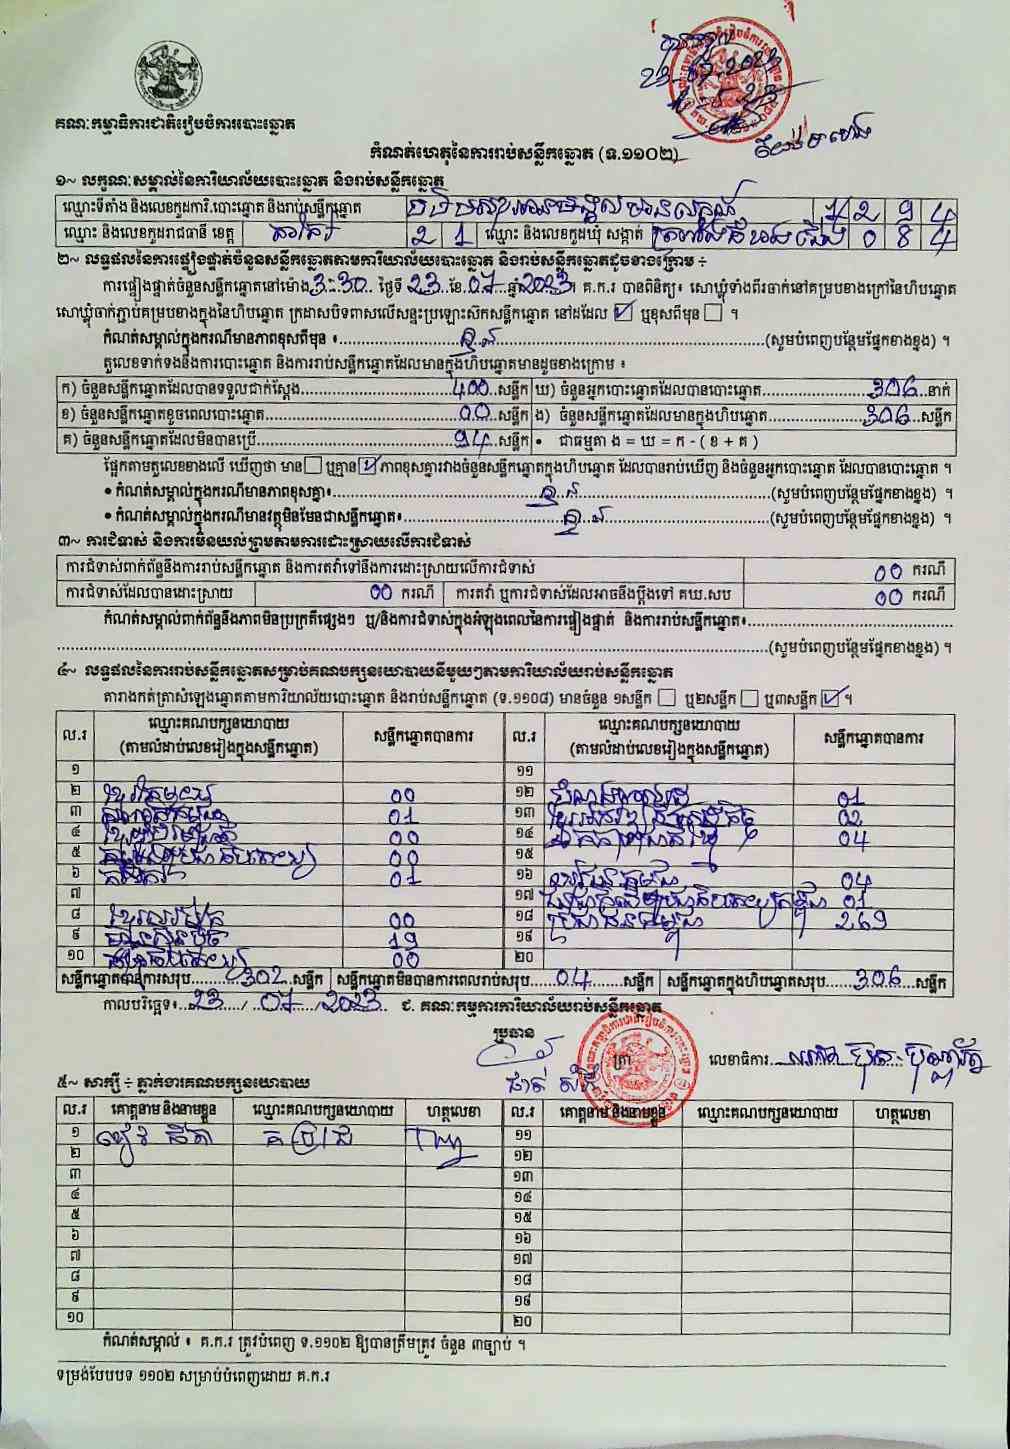 គណៈកម្មាធិការជាតិរៀបចំការបោះឆ្នោត
កំណត់ហេតុនៃការរាប់សន្លឹកឆ្នោត (ទ.១១០២)
១~ លក្ខណៈសម្គាល់នៃការិយាល័យបោះឆ្នោត និងរាប់សន្លឹកឆ្នោត
ឈ្មោះទីតាំង និងលេខកូដការិ.បោះឆ្នោត និងរាប់សន្លឹកឆ្នោត 1 2 9 4
ឈ្មោះ និងលេខកូដរាជធានី ខេត្ត តាកែវ 2 1 ឈ្មោះ និងលេខកូដឃុំ សង្កាត់ 0 8 4
២~ លទ្ធផលនៃការផ្ទៀងផ្ទាត់ចំនួនសន្លឹកឆ្នោតតាមការិយាល័យបោះឆ្នោត និងរាប់សន្លឹកឆ្នោតដូចខាងក្រោម ÷
ការផ្ទៀងផ្ទាត់ចំនួនសន្លឹកឆ្នោតនៅម៉ោង 3:30 ថ្ងៃទី 23 ខែ 07 ឆ្នាំ 2023 ។ គ.ក.រ បានពិនិត្យ៖ សោឃ្លុំទាំងពីរចាក់នៅគម្របខាងក្រៅនៃហិបឆ្នោត
សោឃ្លុំចាក់ភ្ជាប់គម្របខាងក្នុងនៃហិបឆ្នោត ក្រដាសបិទពាសលើសន្ទះប្រឡោះស៊កសន្លឹកឆ្នោត នៅដដែល ☑ ឬខុសពីមុន ☐ ។
កំណត់សម្គាល់ក្នុងករណីមានភាពខុសពីមុន ៖ គ្មាន (សូមបំពេញបន្ថែមផ្នែកខាងខ្នង) ។
តួលេខទាក់ទងនឹងការបោះឆ្នោត និងការរាប់សន្លឹកឆ្នោតដែលមានក្នុងហិបឆ្នោតមានដូចខាងក្រោម ៖
ក) ចំនួនសន្លឹកឆ្នោតដែលបានទទួលជាក់ស្តែង 400 សន្លឹក ឃ) ចំនួនអ្នកបោះឆ្នោតដែលបានបោះឆ្នោត 306 នាក់
ខ) ចំនួនសន្លឹកឆ្នោតខូចពេលបោះឆ្នោត 00 សន្លឹក ង) ចំនួនសន្លឹកឆ្នោតដែលមានក្នុងហិបឆ្នោត 306 សន្លឹក
គ) ចំនួនសន្លឹកឆ្នោតដែលមិនបានប្រើ 94 សន្លឹក • ជាធម្មតា ង = ឃ = ក - ( ខ + គ )
ផ្អែកតាមតួលេខខាងលើ ឃើញថា មាន ☐ ឬគ្មាន ☑ ភាពខុសគ្នារវាងចំនួនសន្លឹកឆ្នោតក្នុងហិបឆ្នោត ដែលបានរាប់ឃើញ និងចំនួនអ្នកបោះឆ្នោត ដែលបានបោះឆ្នោត ។
• កំណត់សម្គាល់ក្នុងករណីមានភាពខុសគ្នា៖ គ្មាន (សូមបំពេញបន្ថែមផ្នែកខាងខ្នង) ។
• កំណត់សម្គាល់ក្នុងករណីមានវត្ថុមិនមែនជាសន្លឹកឆ្នោត៖ គ្មាន (សូមបំពេញបន្ថែមផ្នែកខាងខ្នង) ។
៣~ ការជំទាស់ និងការមិនយល់ព្រមតាមការដោះស្រាយលើការជំទាស់
ការជំទាស់ពាក់ព័ន្ធនឹងការរាប់សន្លឹកឆ្នោត និងការតវ៉ាទៅនឹងការដោះស្រាយលើការជំទាស់ 00 ករណី
ការជំទាស់ដែលបានដោះស្រាយ 00 ករណី ការតវ៉ា ឬការជំទាស់ដែលអាចនឹងប្តឹងទៅ គឃ.សប 00 ករណី
កំណត់សម្គាល់ពាក់ព័ន្ធនឹងភាពមិនប្រក្រតីផ្សេងៗ ឬ/និងការជំទាស់ក្នុងអំឡុងពេលនៃការផ្ទៀងផ្ទាត់ និងការរាប់សន្លឹកឆ្នោត៖
(សូមបំពេញបន្ថែមផ្នែកខាងខ្នង) ។
៤~ លទ្ធផលនៃការរាប់សន្លឹកឆ្នោតសម្រាប់គណបក្សនយោបាយនីមួយៗតាមការិយាល័យរាប់សន្លឹកឆ្នោត
តារាងកត់ត្រាសំឡេងឆ្នោតតាមការិយាល័យបោះឆ្នោត និងរាប់សន្លឹកឆ្នោត (ទ.១១០៨) មានចំនួន ១សន្លឹក ☐ ឬ២សន្លឹក ☐ ឬ៣សន្លឹក ☑ ។
ល.រ ឈ្មោះគណបក្សនយោបាយ (តាមលំដាប់លេខរៀងក្នុងសន្លឹកឆ្នោត) សន្លឹកឆ្នោតបានការ ល.រ ឈ្មោះគណបក្សនយោបាយ (តាមលំដាប់លេខរៀងក្នុងសន្លឹកឆ្នោត) សន្លឹកឆ្នោតបានការ
១ ១១
២ 00 ១២ 01
៣ 01 ១៣ 02
៤ 00 ១៤ 04
៥ 00 ១៥
៦ 01 ១៦ 04
៧ ១៧ 01
៨ 00 ១៨ ប្រជាជនកម្ពុជា 269
៩ 19 ១៩
១០ 00 ២០
សន្លឹកឆ្នោតបានការសរុប 302 សន្លឹក សន្លឹកឆ្នោតមិនបានការពេលរាប់សរុប 04 សន្លឹក សន្លឹកឆ្នោតក្នុងហិបឆ្នោតសរុប 306 សន្លឹក
កាលបរិច្ឆេទ៖ 23 / 07 / 2023 ជ. គណៈកម្មការការិយាល័យរាប់សន្លឹកឆ្នោត
ប្រធាន ត្រា លេខាធិការ
៥~ សាក្សី ÷ ភ្នាក់ងារគណបក្សនយោបាយ
ល.រ គោត្តនាម និងនាមខ្លួន ឈ្មោះគណបក្សនយោបាយ ហត្ថលេខា ល.រ គោត្តនាម និងនាមខ្លួន ឈ្មោះគណបក្សនយោបាយ ហត្ថលេខា
១ ១១
២ ១២
៣ ១៣
៤ ១៤
៥ ១៥
៦ ១៦
៧ ១៧
៨ ១៨
៩ ១៩
១០ ២០
កំណត់សម្គាល់ ៖ គ.ក.រ ត្រូវបំពេញ ទ.១១០២ ឱ្យបានត្រឹមត្រូវ ចំនួន ៣ច្បាប់ ។
ទម្រង់បែបបទ ១១០២ សម្រាប់បំពេញដោយ គ.ក.រ